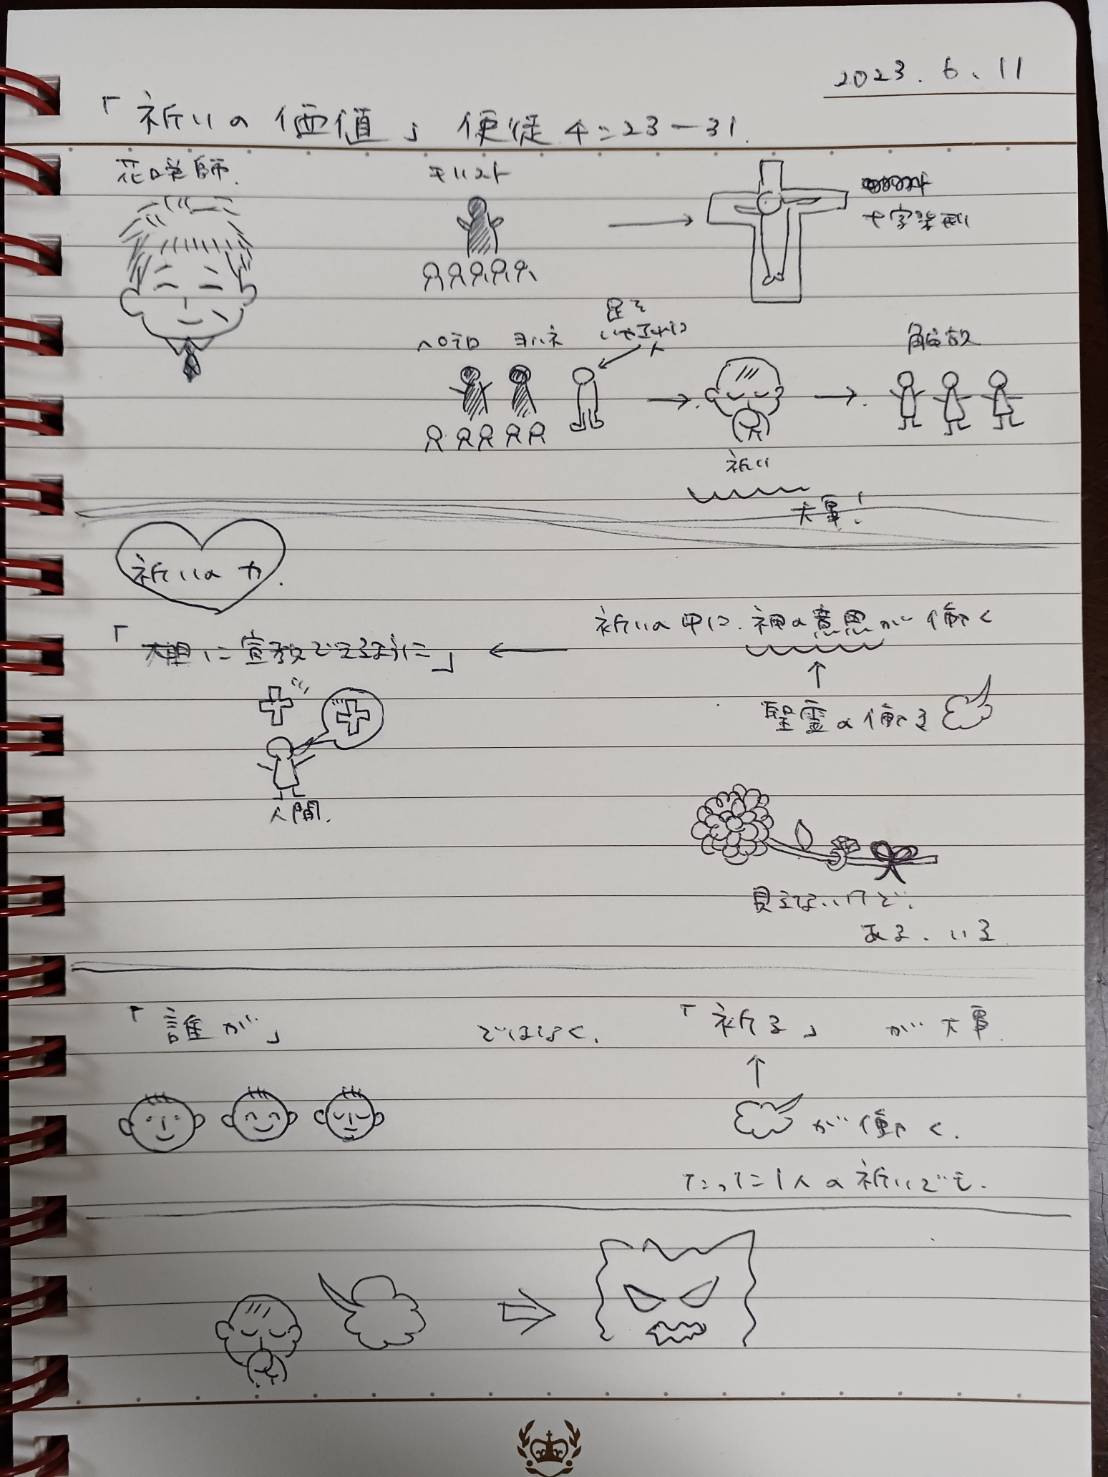 2023.6.11
「祈りの価値」 使徒 4:23-31.
花咲師.
キリスト
十字架刑
ペテロ ヨハネ 足を
いやされた
人
解放
祈り
大事!
祈りの力.
祈りの中に.神の意思が働く
「大胆に宣教できるように」
聖霊の働き
人間.
見えないけど.
ある.いる
「誰が」 ではなく. 「祈る」 が大事
が働く.
たった1人の祈りでも.